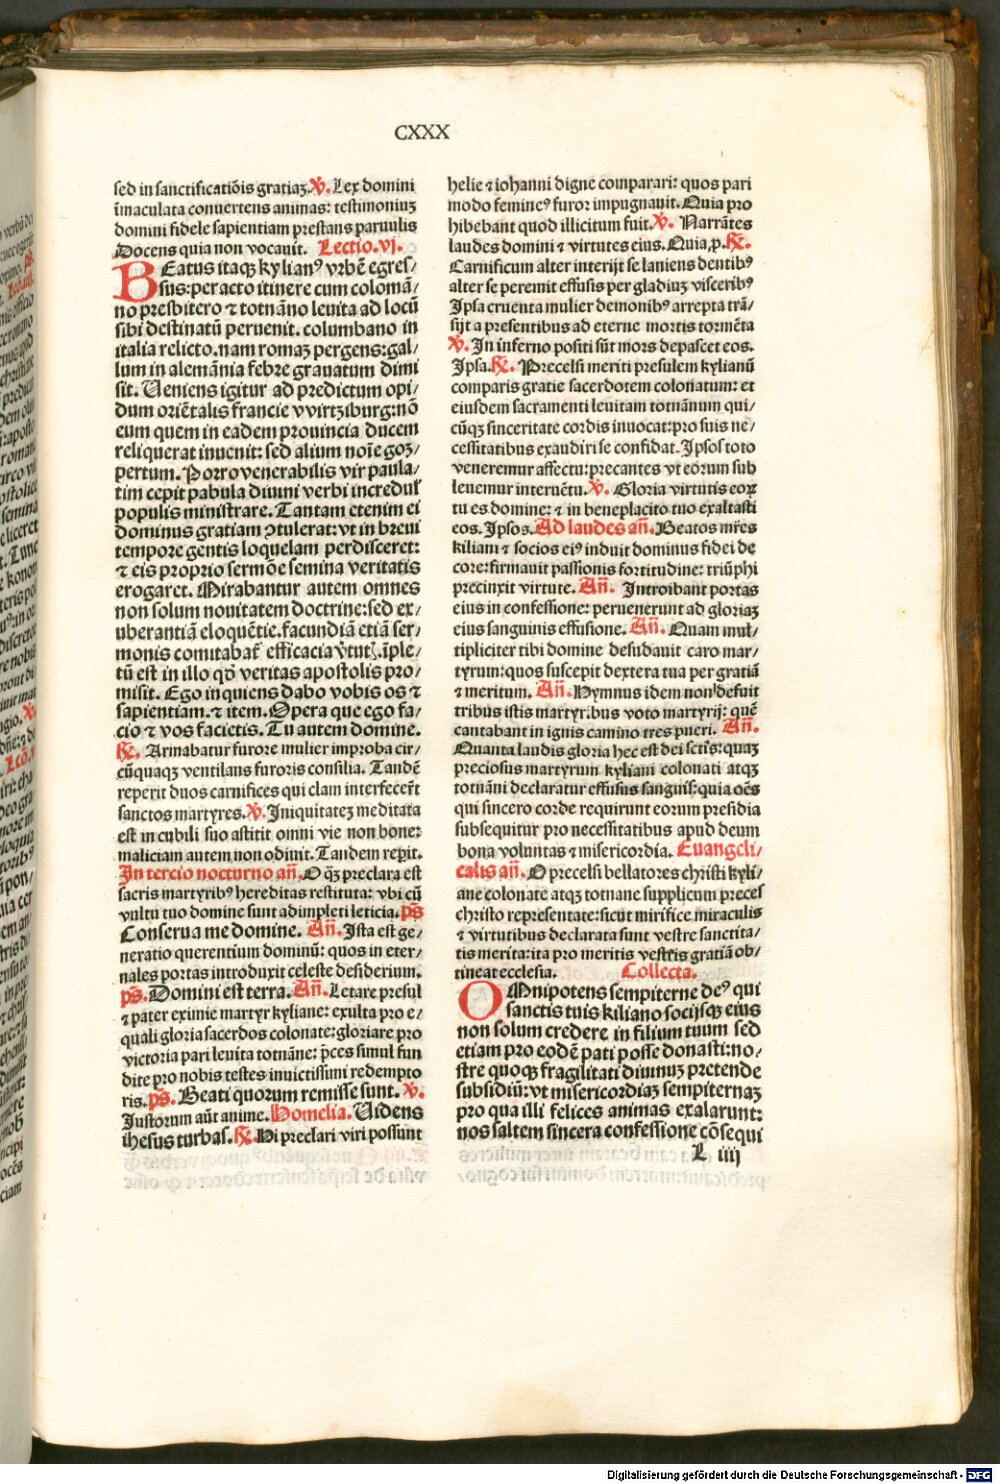 CXXX
sed in sanctificatiõis gratiaʒ. ℣. Lex domini
ĩmaculata conuertens animas: testimoniuʒ
domini fidele sapientiam prestans paruulis
Docens quia non vocauit. Lectio.vj.
BEatus itaqꝫ kylianꝰ vrbẽ egres/
sus: peracto itinere cum colomã/
no presbitero ⁊ totnãno leuita ad locũ
sibi destinatũ peruenit. columbano in
italia relicto. nam romaʒ pergens: gal/
lum in alemãnia febre grauatum dimi
sit. Ueniens igitur ad predictum opi/
dum oriẽtalis francie vvirtziburg: nõ
eum quem in eadem prouincia ducem
reliquerat inuenit: sed alium noĩe goʒ/
pertum. Porro venerabilis vir paula/
tim cepit pabula diuini verbi incredul̃
populis ministrare. Tantam etenim ei
dominus gratiam ꝯtulerat: vt in breui
tempore gentis loquelam perdisceret:
⁊ eis proprio sermõe semina veritatis
erogaret. Mirabantur autem omnes
non solum nouitatem doctrine: sed ex/
uberantiã eloquẽtie. facundiã etiã ser/
monis comitabat̃ efficacia ṽtut̃. ĩple/
tũ est in illo qď veritas apostolis pro/
misit. Ego inquiens dabo vobis os ⁊
sapientiam. ⁊ item. Opera que ego fa/
cio ⁊ vos facietis. Tu autem domine.
℟. Armabatur furore mulier improba cir/
cũquaqꝫ ventilans furoris consilia. Tandẽ
reperit duos carnifices qui clam interfecer̃t
sanctos martyres. ℣. Iniquitateʒ meditata
est in cubili suo astitit omni vie non bone:
maliciam autem non odiuit. Tandem rep̃it.
In tercio nocturno añ. O qꝫ preclara est
sacris martyribꝰ hereditas restituta: vbi cũ
vultu tuo domine sunt adimpleti leticia. p̃s
Conserua me domine. Añ. Ista est ge/
neratio querentium dominũ: quos in eter/
nales portas introduxit celeste desiderium.
p̃s. Domini est terra. Añ. Letare presul
⁊ pater eximie martyr kyliane: exulta pro e/
quali gloria sacerdos colonate: gloriare pro
victoria pari leuita totnãne: p̃ces simul fun
dite pro nobis testes inuictissimi redempto
ris. p̃s. Beati quorum remisse sunt. ℣.
Iustorum aũt anime. Homelia. Uidens
ihesus turbas. ℟. Hi preclari viri possunt
helie ⁊ iohanni digne comparari: quos pari
modo femineꝰ furor impugnauit. Quia pro
hibebant quod illicitum fuit. ℣. Narrãtes
laudes domini ⁊ virtutes eius. Quia p. ℟.
Carnificum alter interijt se laniens dentibꝰ
alter se peremit effusis per gladiuʒ visceribꝰ
Ipsa cruenta mulier demonibꝰ arrepta trã/
sijt a presentibus ad eterne mortis tormẽta
℣. In inferno positi sũt mors depascet eos.
Ipsa. ℟. Precelsi meriti presulem kylianũ
comparis gratie sacerdotem colonatum: et
eiusdem sacramenti leuitam totnãnum qui/
cũqꝫ sinceritate cordis inuocat: pro suis ne/
cessitatibus exaudiri se confidat. Ipsos toto
veneremur affectu: precantes vt eorum sub
leuemur interuẽtu. ℣. Gloria virtutis eoꝝ
tu es domine: ⁊ in beneplacito tuo exaltasti
eos. Ipsos. Ad laudes añ. Beatos mr̃es
kiliam ⁊ socios eiꝰ induit dominus fidei de
core: firmauit passionis fortitudine: triũphi
precinxit virtute. Añ. Introibant portas
eius in confessione: peruenerunt ad gloriaʒ
eius sanguinis effusione. Añ. Quam mul/
tipliciter tibi domine desudauit caro mar/
tyrum: quos suscepit dextera tua per gratiã
⁊ meritum. Añ. Hymnus idem non defuit
tribus istis martyribus voto martyrij: quẽ
cantabant in ignis camino tres pueri. Añ.
Quanta laudis gloria hec est dei sctis̃: quaʒ
preciosus martyrum kyliani colonati atqꝫ
totnãni declaratur effusus sanguis: quia oẽs
qui sincero corde requirunt eorum presidia
subsequitur pro necessitatibus apud deum
bona voluntas ⁊ misericordia. Euangeli/
calis añ. O precelsi bellatores christi kyli/
ane colonate atqꝫ totnane supplicum preces
christo representate: sicut mirifice miraculis
⁊ virtutibus declarata sunt vestre sanctita/
tis merita: ita pro meritis vestris gratiã ob/
tineat ecclesia. Collecta.
OMnipotens sempiterne deꝰ qui
sanctis tuis kiliano socijsqꝫ eius
non solum credere in filium tuum sed
etiam pro eodẽ pati posse donasti: no/
stre quoqꝫ fragilitati diuinuʒ pretende
subsidiũ: vt misericordiaʒ sempiternaʒ
pro qua illi felices animas exalarunt:
nos saltem sincera confessione cõsequi
L iiij
Digitalisierung gefördert durch die Deutsche Forschungsgemeinschaft - DFG